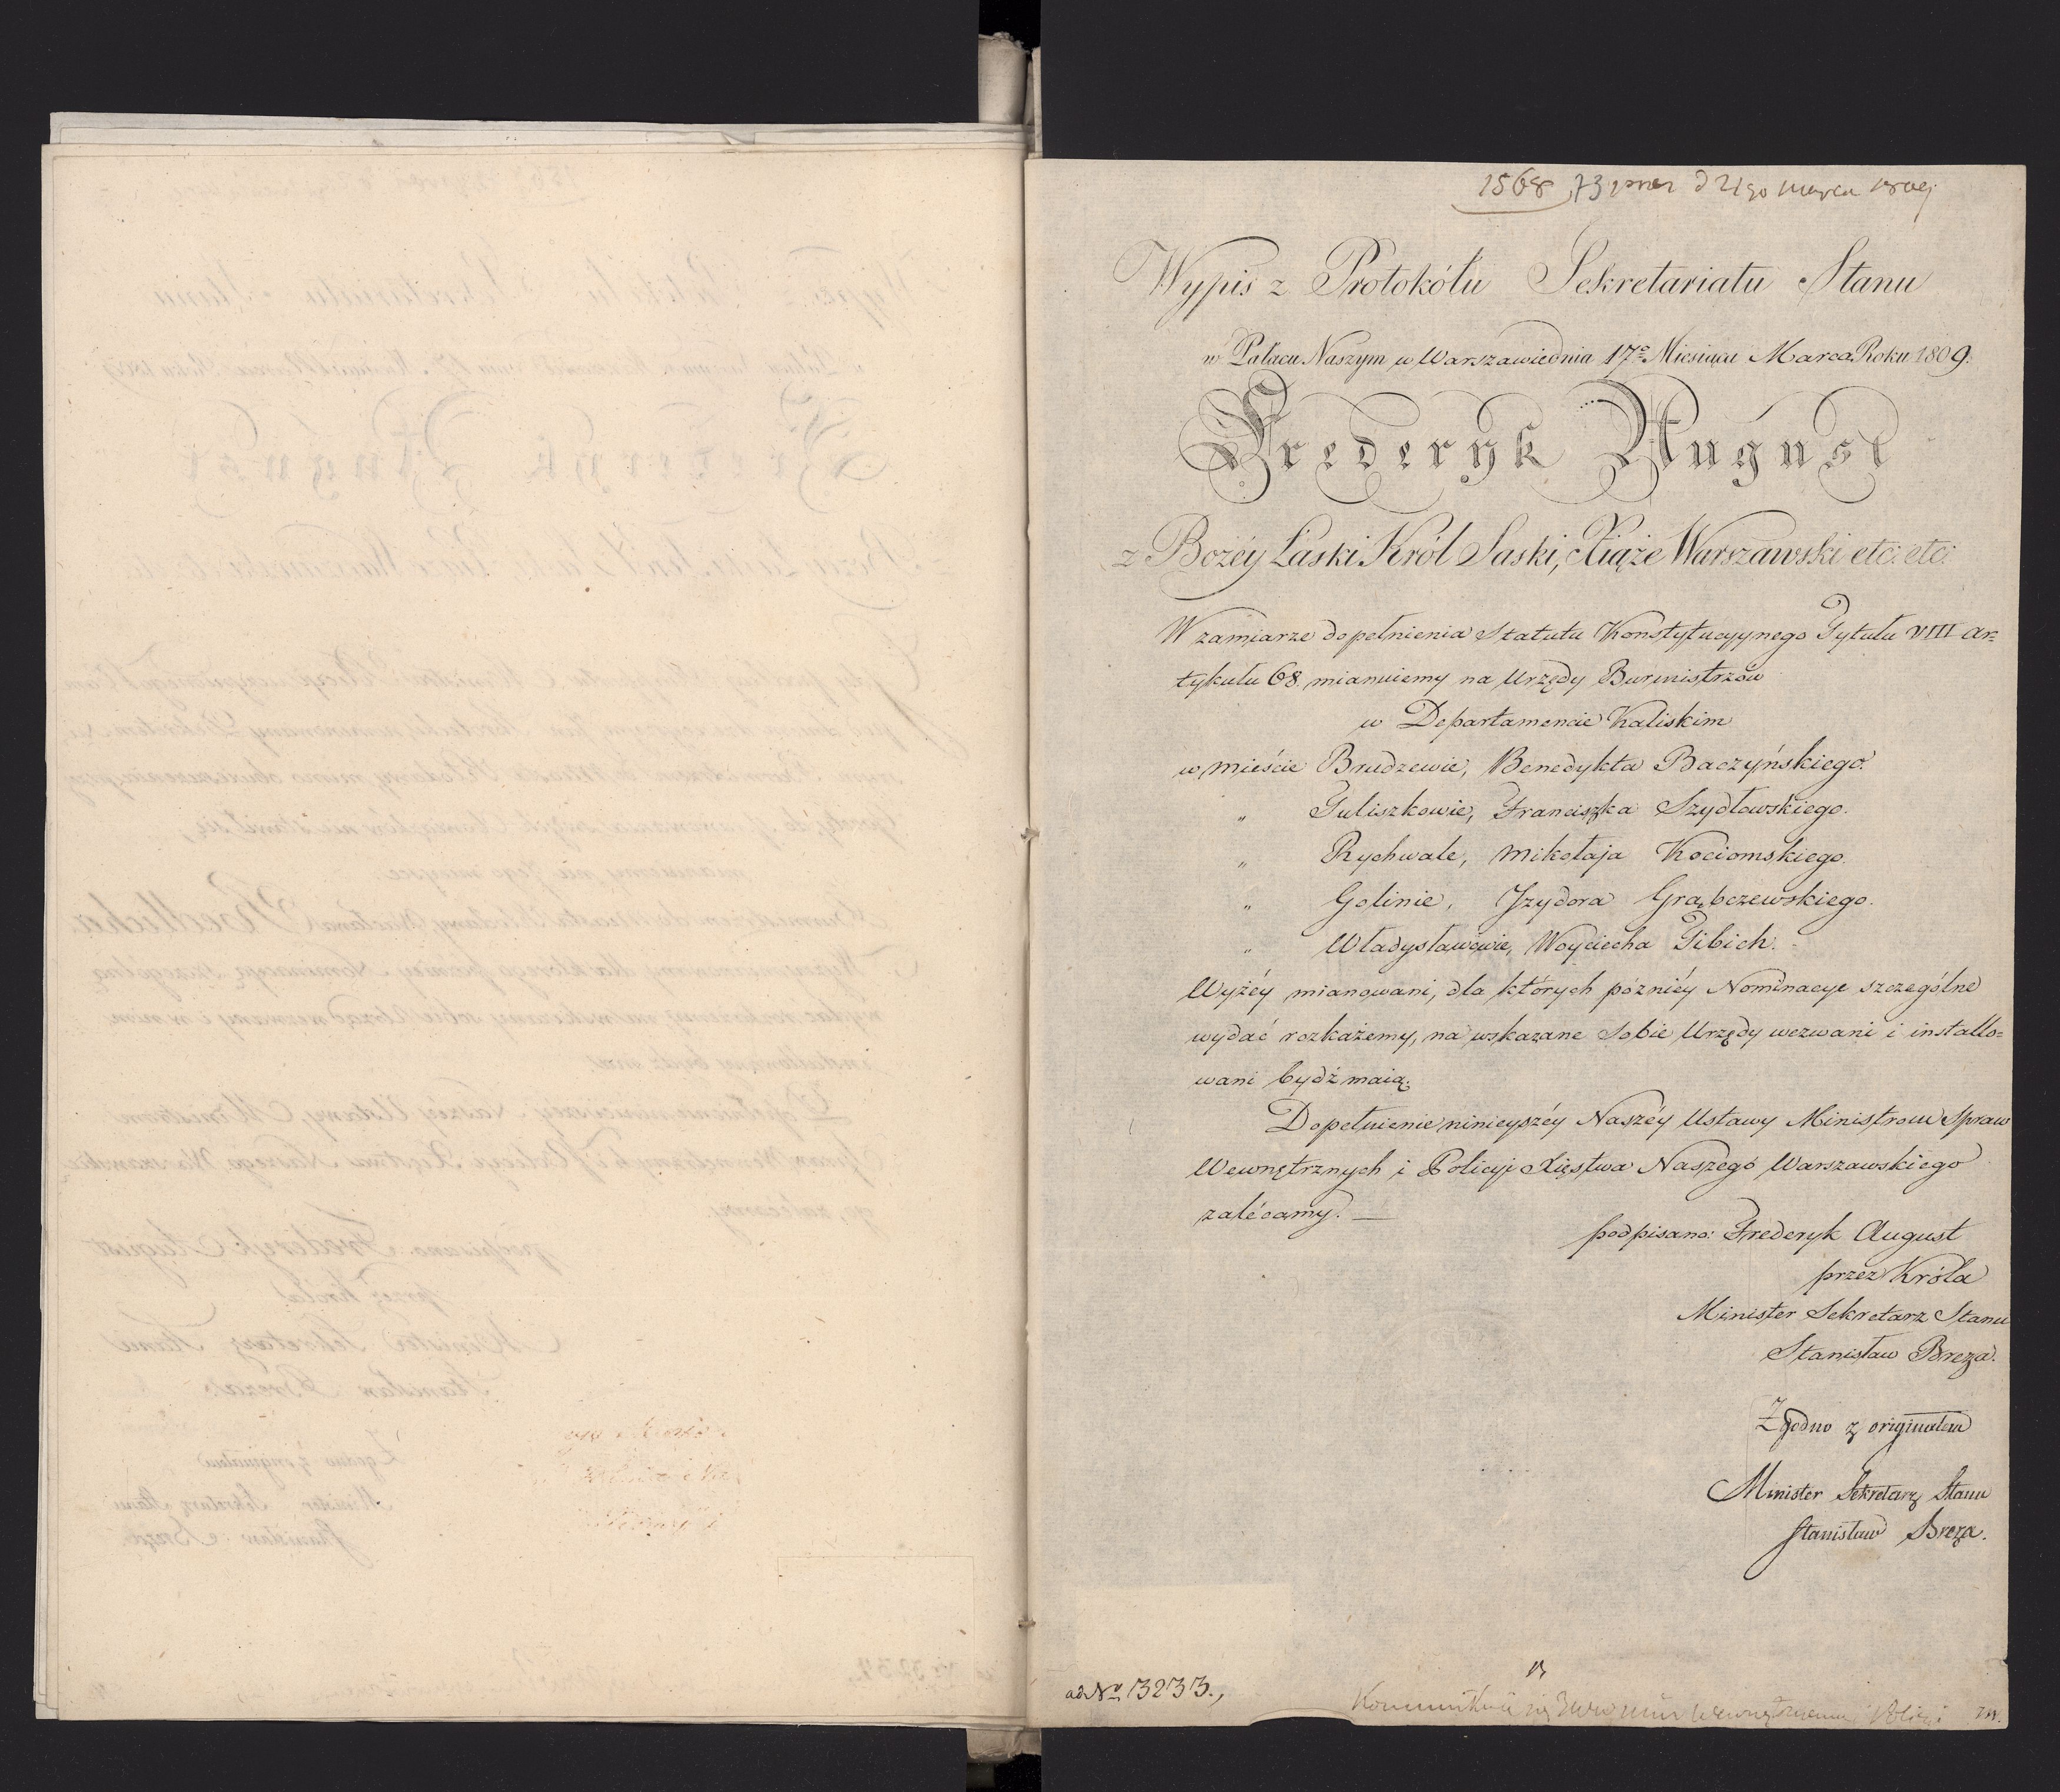 1568
Wypis z Protokółu Sekretariatu Stanu
w Pałacu Naszym w Warszawie dnia 17º Miesiąca Marca Roku 1809.
Frederyk August
z Bożéy Łaski Król Saski, Xiąże Warszawski etc: etc:
W zamiarze dopełnienia Statutu Konstytucyynego Tytułu VIII ar=
tykułu 68. mianuiemy na Urzędy Burmistrzów
w Departamencie Kaliskim
w mieście Brudzewie, Benedykta Baczyńskiego.
„ Tuliszkowie, Franciszka Szydłowskiego.
„ Rychwale, Mikołaja Kociomskiego.
„ Golinie, Jzydora Grąbczewskiego.
„ Władysławowie, Woyciecha Tibich.
Wyżéy mianowani, dla których póżniéy Nominacye szczególne
wydać rozkażemy, na wskazane Sobie Urzędy wezwani i installo=
wani bydź maią.
Dopełnienie ninieyszéy Naszéy Ustawy Ministrom Spraw
Wewnętrznych i Policyi Xięstwa Naszego Warszawskiego
zalécamy. —
podpisano: Frederyk August
przez Króla
Minister Sekretarz Stanu
Stanisław Breza.
Zgodno z originałem
Minister Sekretarz Stanu
Stanisław Breza.
ad Nº 3233.,